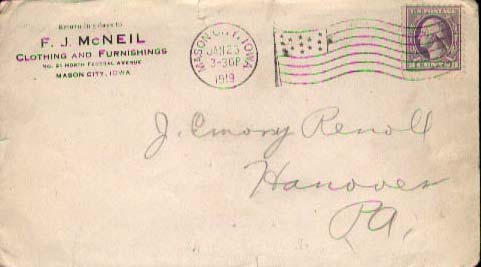 Return in 5 days to
F. J. McNEIL
CLOTHING AND FURNISHINGS
NO. 21 NORTH FEDERAL AVENUE
MASON CITY, IOWA
MASON CITY, IOWA
JAN 23
3-30P
1919
U.S. POSTAGE
J. Emory Renoll
Hanover
PA.